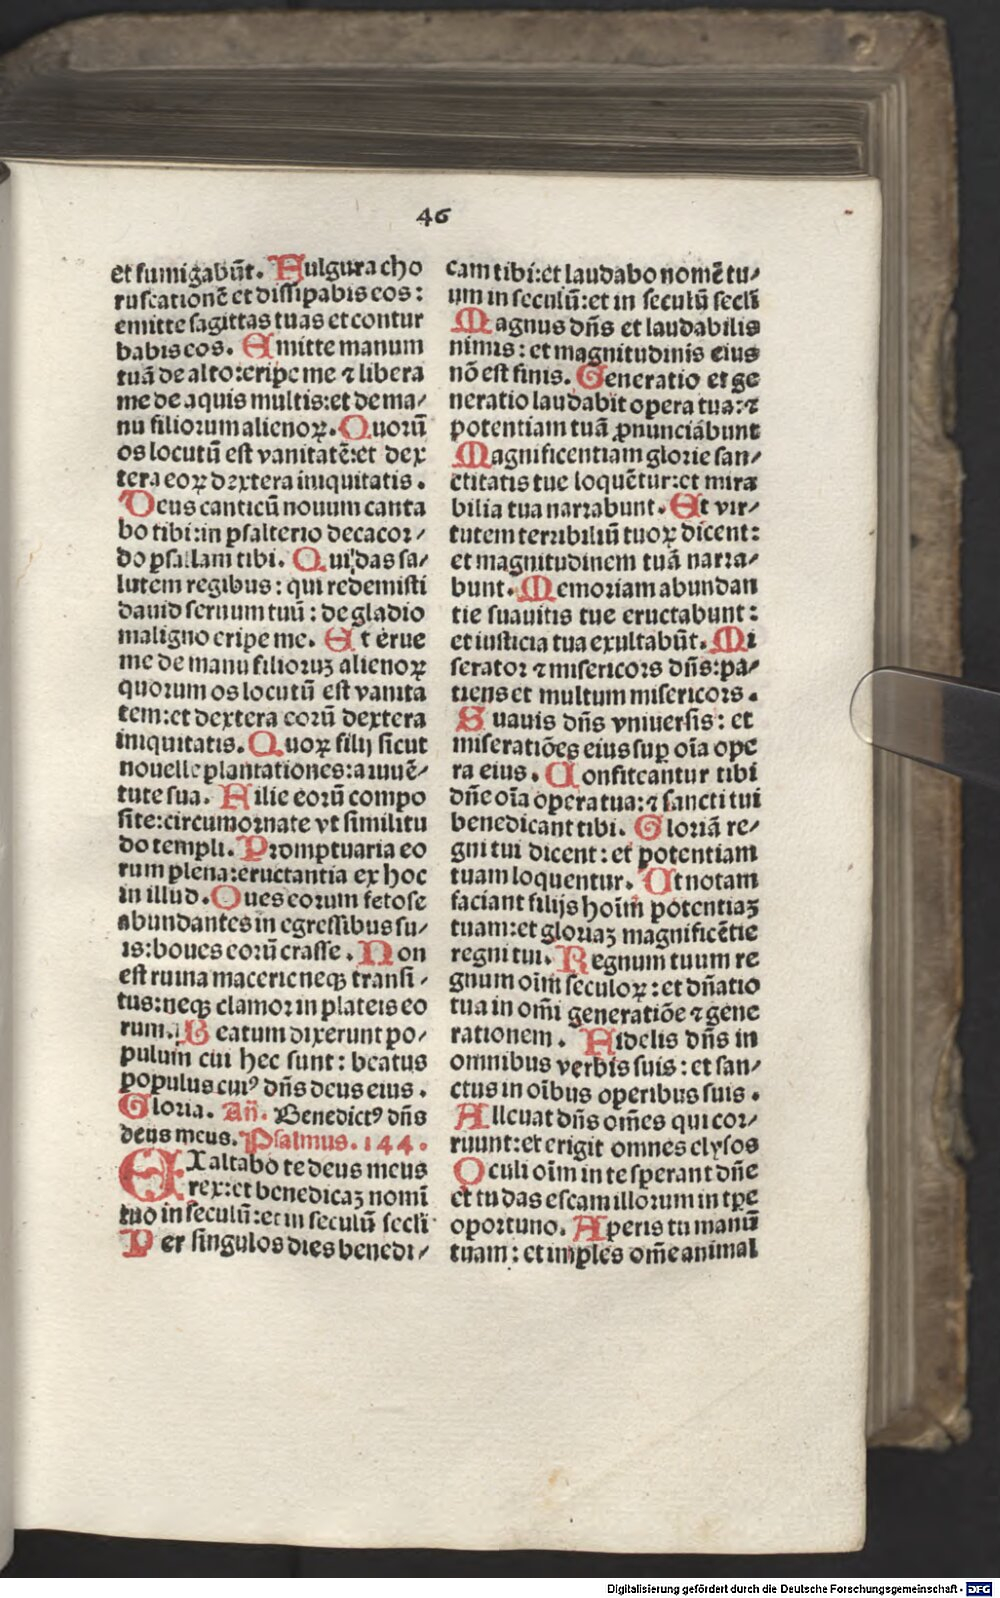 46
et fumigabūt. Fulgura cho
ruscationē et dissipabis eos:
emitte sagittas tuas et contur
babis eos. Emitte manum
tuā de alto: eripe me ⁊ libera
me de aquis multis: et de ma/
nu filiorum alienoꝝ. Quorū
os locutū est vanitatē: et dex
tera eoꝝ dextera iniquitatis.
Deus canticū nouum canta
bo tibi: in psalterio decacor/
do psallam tibi. Qui das sa/
lutem regibus: qui redemisti
dauid seruum tuū: de gladio
maligno eripe me. Et erue
me de manu filioruꝫ alienoꝝ
quorum os locutū est vanita
tem: et dextera eorū dextera
iniquitatis. Quoꝝ filij sicut
nouelle plantationes: a iuuē/
tute sua. Filie eorū compo
site: circumornate vt similitu
do templi. Promptuaria eo
rum plena: eructantia ex hoc
in illud. Oues eorum fetose
abundantes in egressibus su/
is: boues eorū crasse. Non
est ruina macerie neqꝫ transi/
tus: neqꝫ clamor in plateis eo
rum. Beatum dixerunt po/
pulum cui hec sunt: beatus
populus cuiꝰ dn̄s deus eius.
Gloria. Añ. Benedictꝰ dn̄s
deus meus. Psalmus. 144.
EXaltabo te deus meus
rex: et benedicaꝫ nomī
tuo in seculū: et in seculū secli
Per singulos dies benedi/
cam tibi: et laudabo nomē tu/
um in seculū: et in seculū secli
Magnus dn̄s et laudabilis
nimis: et magnitudinis eius
nō est finis. Generatio et ge
neratio laudabit opera tua: ⁊
potentiam tuā ꝓnunciabunt
Magnificentiam glorie san/
ctitatis tue loquētur: et mira
bilia tua narrabunt. Et vir/
tutem terribiliū tuoꝝ dicent:
et magnitudinem tuā narra/
bunt. Memoriam abundan
tie suauitis tue eructabunt:
et iusticia tua exultabūt. Mi
serator ⁊ misericors dn̄s: pa/
tiens et multum misericors.
Suauis dn̄s vniuersis: et
miseratiōes eius suꝑ oīa ope
ra eius. Confiteantur tibi
dn̄e oīa opera tua: ⁊ sancti tui
benedicant tibi. Gloriā re/
gni tui dicent: et potentiam
tuam loquentur. Ut notam
faciant filijs hoīm potentiaꝫ
tuam: et gloriaꝫ magnificētie
regni tui. Regnum tuum re
gnum oīm seculoꝝ: et dn̄atio
tua in om̄i generatiōe ⁊ gene
rationem. Fidelis dn̄s in
omnibus verbis suis: et san/
ctus in oībus operibus suis.
Alleuat dn̄s om̄es qui cor/
ruunt: et erigit omnes elysos
Oculi oīm in te sperant dn̄e
et tu das escam illorum in tꝑe
oportuno. Aperis tu manū
tuam: et imples om̄e animal
Digitalisierung gefördert durch die Deutsche Forschungsgemeinschaft - DFG